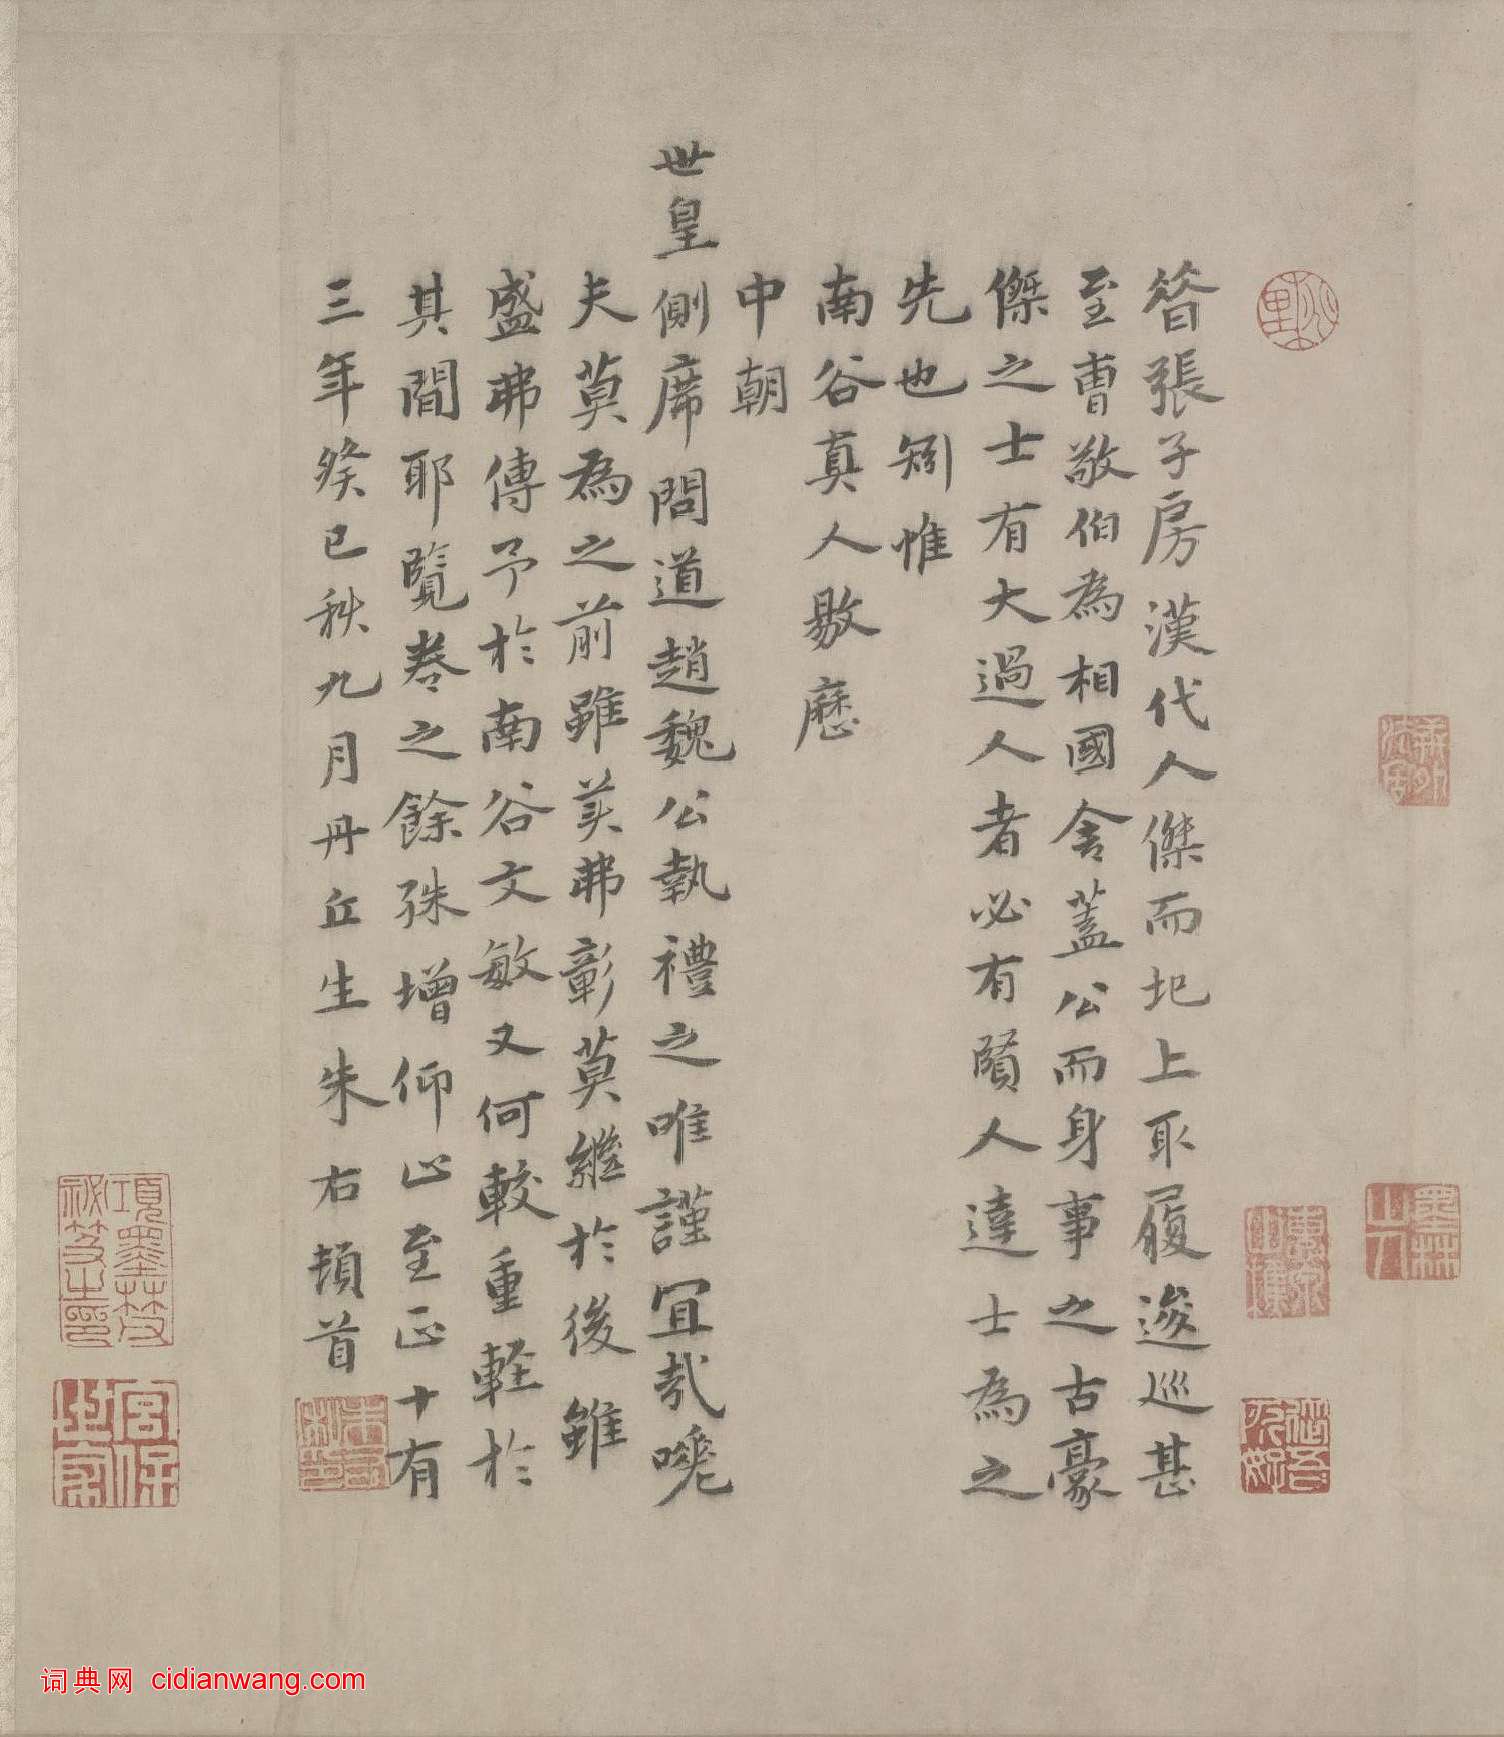 昔張子房漢代人傑而圯上取履逡巡甚
至曹敬伯為相國舍蓋公而身事之古豪
傑之士有大過人者必有賢人達士為之
先也矧惟
南谷真人敭歷
中朝
世皇側席問道趙魏公執禮之唯謹宜哉噫
夫莫為之前雖美弗彰莫繼於後雖
盛弗傳予於南谷文敏又何較重輕於
其間耶覽卷之餘殊增仰止至正十有
三年癸巳秋九月丹丘生朱右頓首
墨林山人
項墨林父秘笈之印
宮保世家
词典网 cidianwang.com